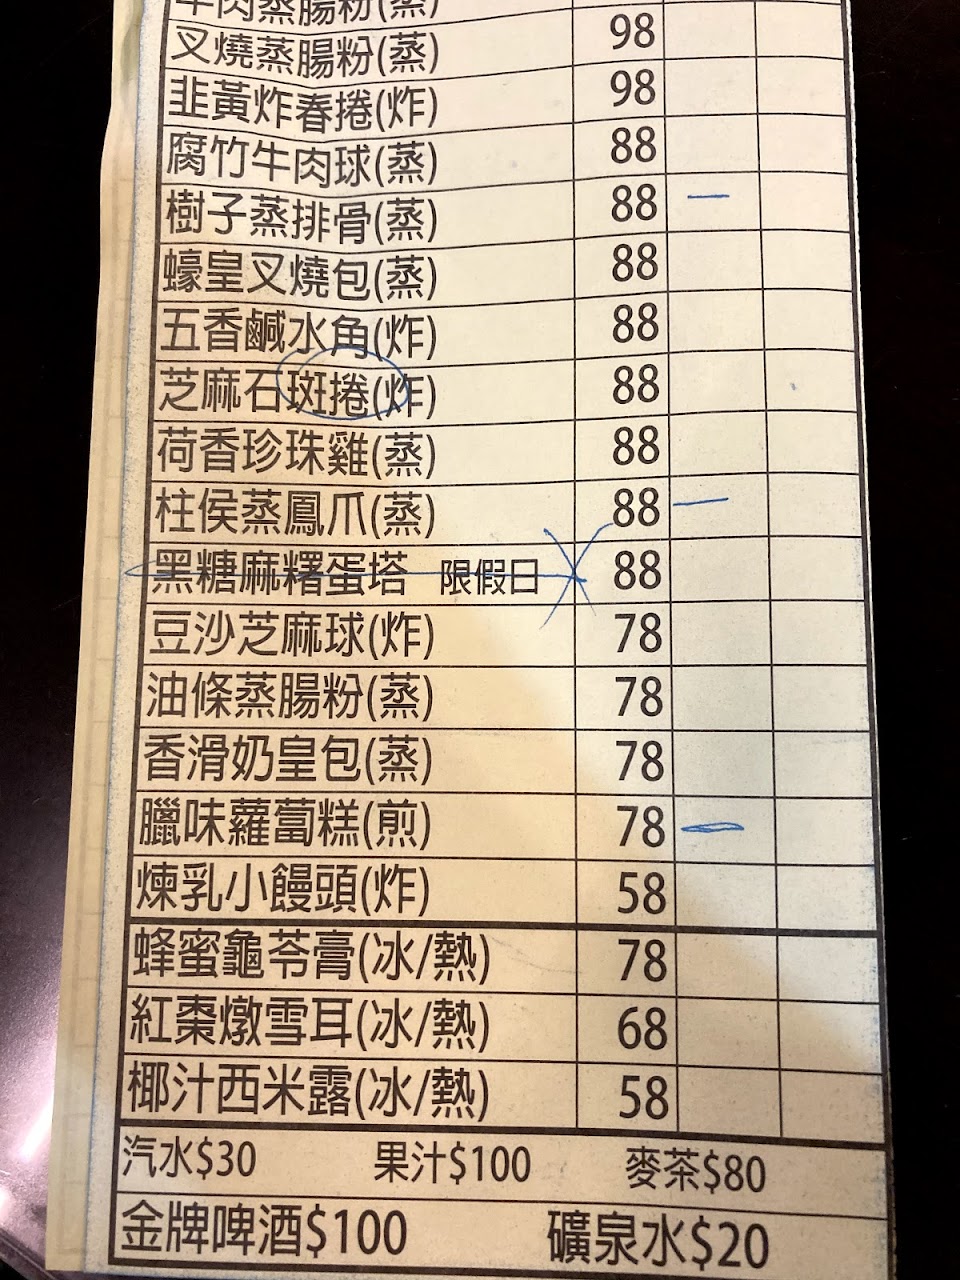 牛肉蒸腸粉(蒸)
叉燒蒸腸粉(蒸) 98
韭黃炸春捲(炸) 98
腐竹牛肉球(蒸) 88
樹子蒸排骨(蒸) 88 一
蠔皇叉燒包(蒸) 88
五香鹹水角(炸) 88
芝麻石斑捲(炸) 88
荷香珍珠雞(蒸) 88
柱侯蒸鳳爪(蒸) 88 一
黑糖麻糬蛋塔 限假日 88
豆沙芝麻球(炸) 78
油條蒸腸粉(蒸) 78
香滑奶皇包(蒸) 78
臘味蘿蔔糕(煎) 78 一
煉乳小饅頭(炸) 58
蜂蜜龜苓膏(冰/熱) 78
紅棗燉雪耳(冰/熱) 68
椰汁西米露(冰/熱) 58
汽水$30 果汁$100 麥茶$80
金牌啤酒$100 礦泉水$20